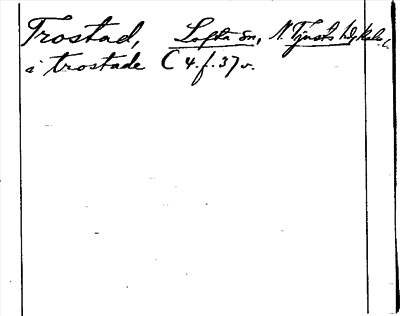 Trostad, Lofta sn, N. Tjusts hd, Kalm. l.
i trostade C 4. f. 37 v.